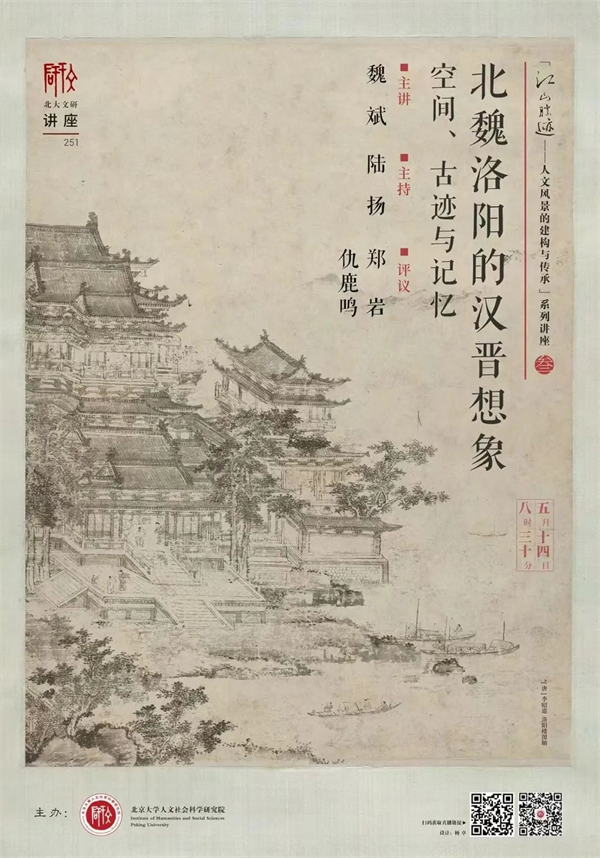 「江山胜迹——人文风景的建构与传承」系列讲座 叁
北魏洛阳的汉晋想象
空间、古迹与记忆
■主讲 ■主持 ■评议
魏斌 陆扬 郑岩
仇鹿鸣
北大文研
讲座
251
五月十四日
八时三十分
[唐]李昭道 洛阳楼图轴
主办：
北京大学人文社会科学研究院
Institute of Humanities and Social Sciences
Peking University
设计：杨卓